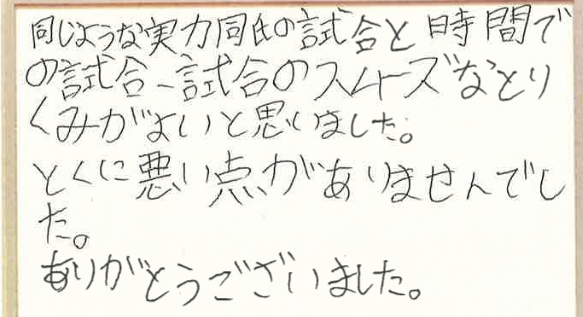 同じような実力同氏の試合と時間で
の試合、試合のスムーズなとり
くみがよいと思いました。
とくに悪い点がありませんでし
た。
ありがとうございました。